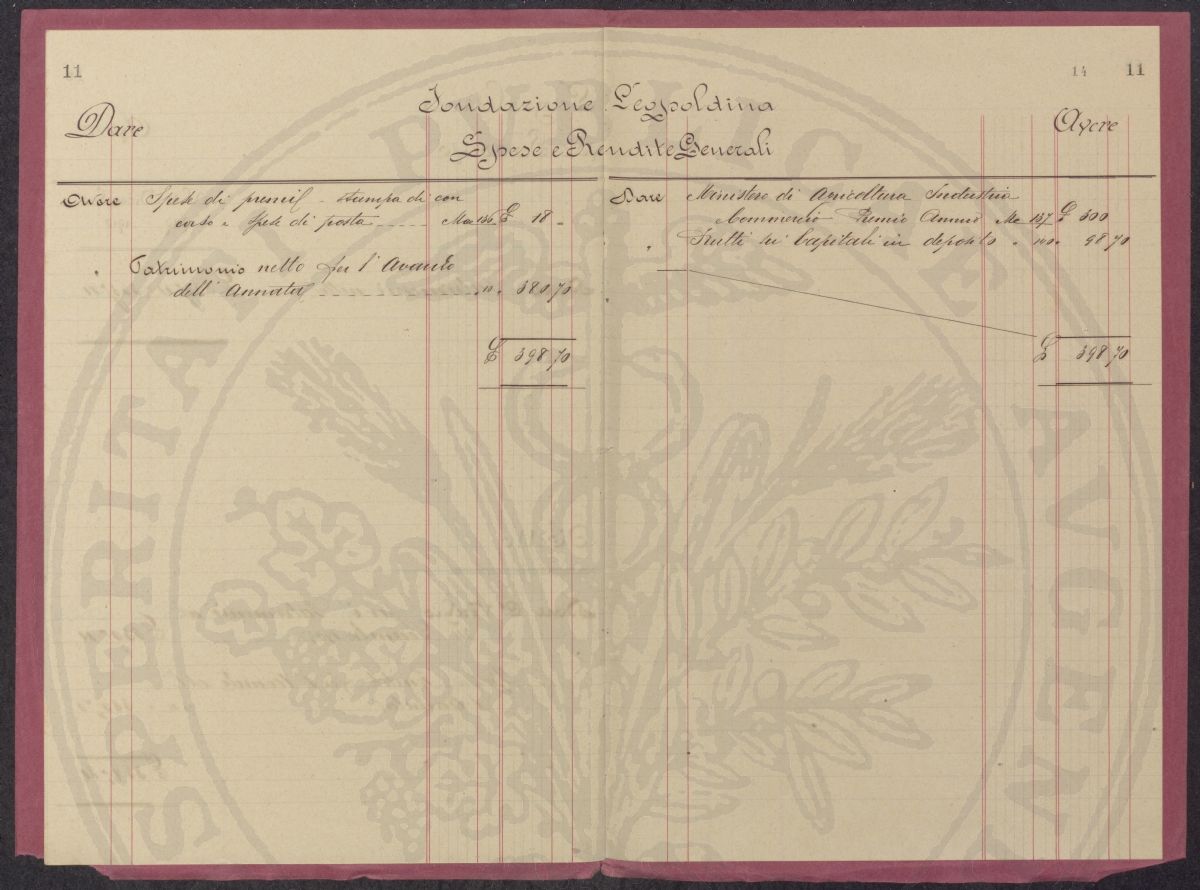 11
14 11
Fondazione Leopoldina
Dare
Avere
Spese e Rendite Generali
Avere Spese di premij - stampa di con
corso e spese di posta Mce 136 £ 18 "
" Patrimonio netto per l' Avanzo
dell' Annata " " 380,70
£ 398,70
Dare Ministero di Agricoltura Industria
Commercio Premio Annuo Mce 137 £ 300
" Frutti sui Capitali in deposito " 98 70
£ 398,70
PERITATI PVBLICAE AVGEN